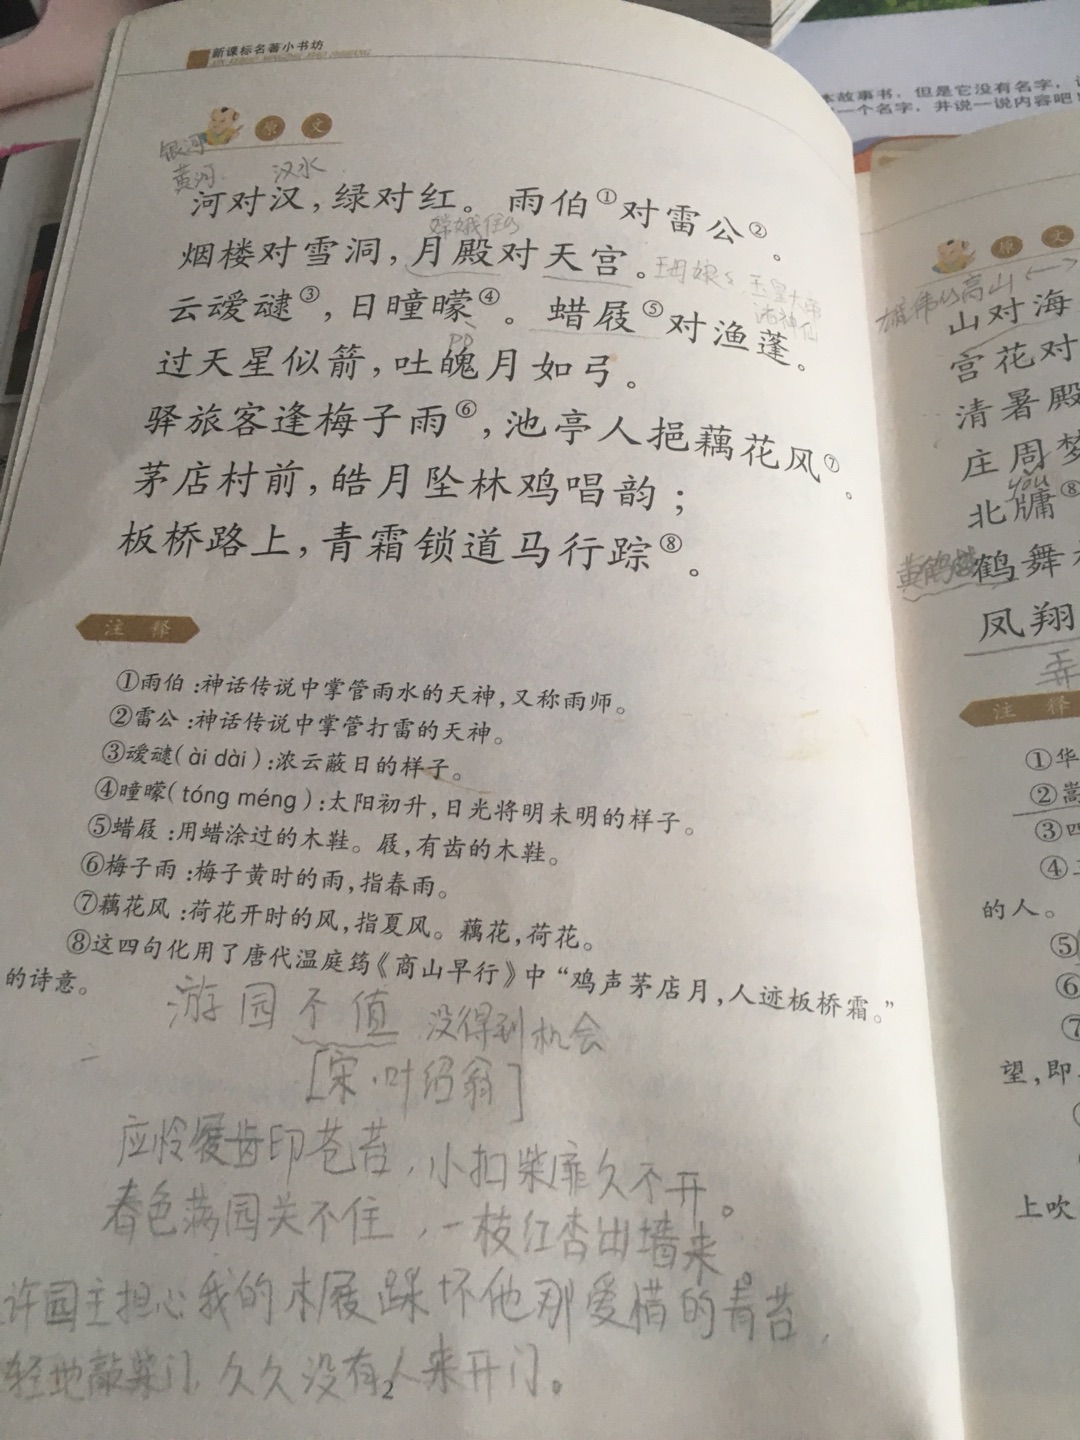 新课标名著小书坊
原文
银河
黄河 汉水
河对汉，绿对红。雨伯①对雷公②。
嫦娥住的
烟楼对雪洞，月殿对天宫。
王母娘娘 玉皇大帝
诸神仙
云叆叇③，日曈曚④。蜡屐⑤对渔蓬。
pò
过天星似箭，吐魄月如弓。
驿旅客逢梅子雨⑥，池亭人挹藕花风⑦。
茅店村前，皓月坠林鸡唱韵；
板桥路上，青霜锁道马行踪⑧。
注释
①雨伯：神话传说中掌管雨水的天神，又称雨师。
②雷公：神话传说中掌管打雷的天神。
③叆叇(ài dài)：浓云蔽日的样子。
④曈曚(tóng méng)：太阳初升，日光将明未明的样子。
⑤蜡屐：用蜡涂过的木鞋。屐，有齿的木鞋。
⑥梅子雨：梅子黄时的雨，指春雨。
⑦藕花风：荷花开时的风，指夏风。藕花，荷花。
⑧这四句化用了唐代温庭筠《商山早行》中“鸡声茅店月，人迹板桥霜。”
的诗意。
游园不值 没得到机会
[宋·叶绍翁]
应怜屐齿印苍苔，小扣柴扉久不开。
春色满园关不住，一枝红杏出墙来。
许园主担心我的木屐踩坏他那爱惜的青苔，
轻地敲柴门，久久没有人来开门。
2
本故事书，但是它没有名字，
一个名字，并说一说内容吧！
原文
雄伟的高山
山对海
宫花对
清暑殿
庄周梦
you
北牖⑧
黄鹤楼
鹤舞
凤翔
弄
注释
①华
②嵩
③四
④
的人。
⑤
⑥
⑦
望，即
上吹